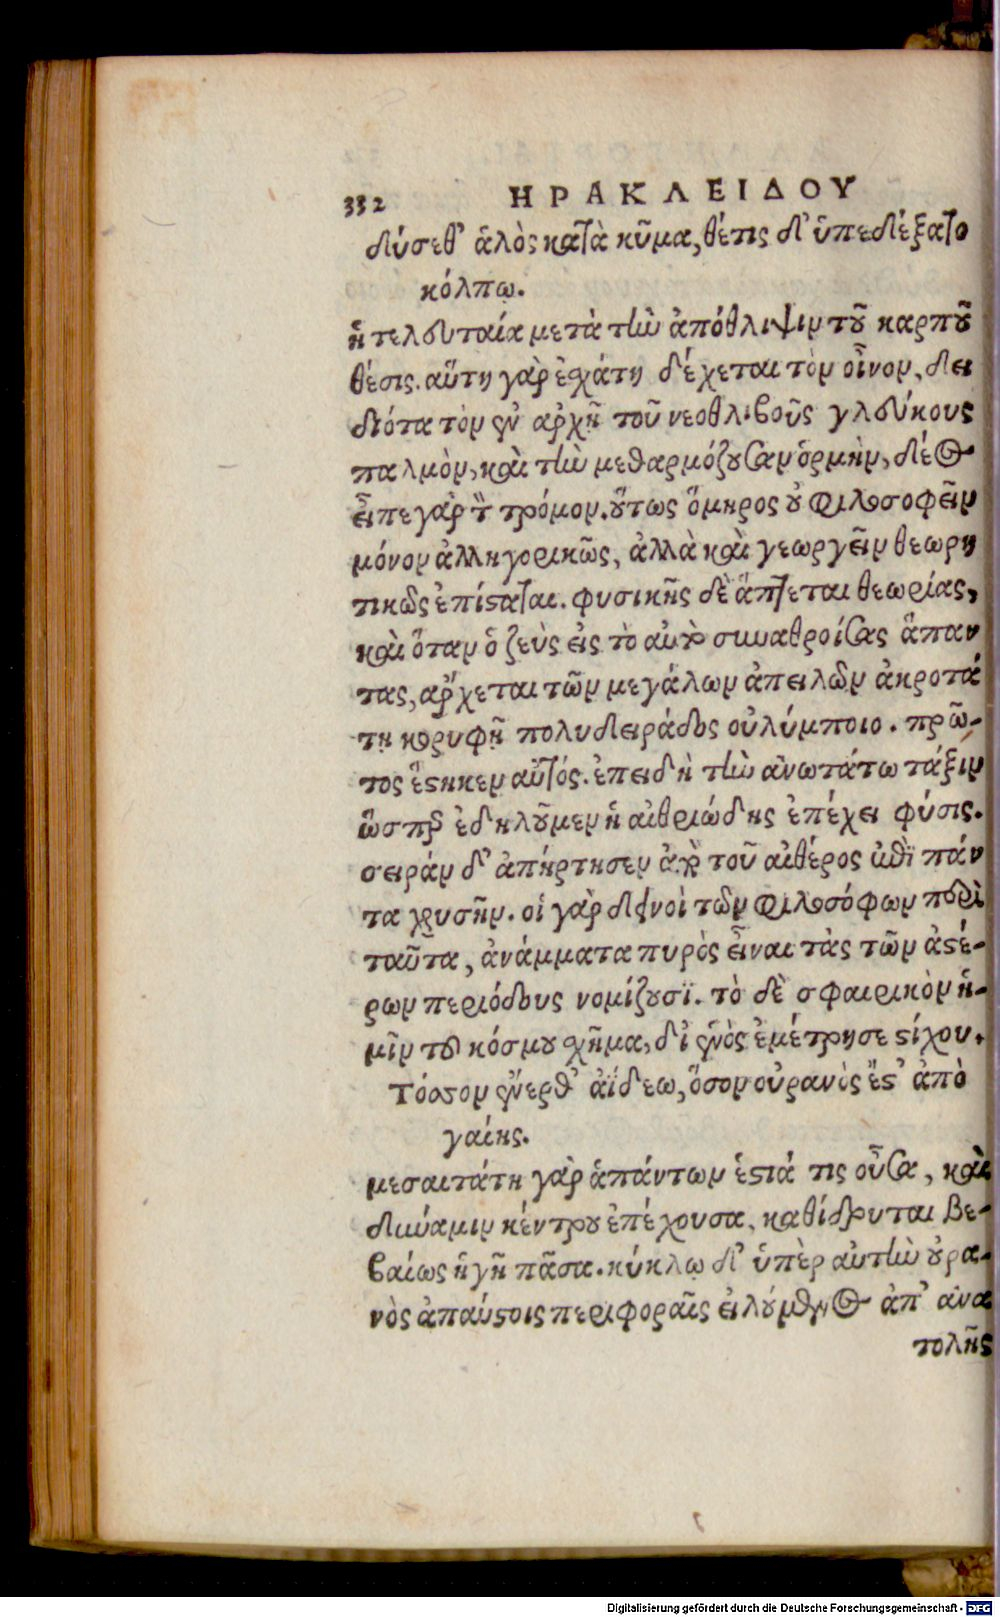 332 ΗΡΑΚΛΕΙΔΟΥ
δύσεθ᾽ ἁλὸς κατὰ κῦμα, θέτις δ᾽ ὑπεδέξατο
κόλπῳ.
ἡ τελευταία μετὰ τὴν ἀπόθλιψιν τοῦ καρποῦ
θέσις. αὕτη γὰρ ἐσχάτη δέχεται τὸν οἶνον, δει
διότα τὸν ἐν ἀρχῇ τοῦ νεοθλιβοῦς γλεύκους
παλμὸν, καὶ τὴν μεθαρμόζουσαν ὁρμὴν, δέος
εἶπε γὰρ τὸν τρόμον. οὕτως ὅμηρος οὐ φιλοσοφεῖν
μόνον ἀλληγορικῶς, ἀλλὰ καὶ γεωργεῖν θεωρη
τικῶς ἐπίσταται. φυσικῆς δὲ ἅπτεται θεωρίας,
καὶ ὅταν ὁ ζεὺς εἰς τὸ αὐτὸ συναθροίσας ἅπαν
τας, ἄρχεται τῶν μεγάλων ἀπειλῶν ἀκροτά
τῃ κορυφῇ πολυδειράδος οὐλύμποιο. πρῶ-
τος ἕστηκεν αὐτός. ἐπειδὴ τὴν ἀνωτάτω τάξιν
ὥσπερ ἐδηλοῦμεν ἡ αἰθριώδης ἐπέχει φύσις.
σειρὰν δ᾽ ἀπήρτησεν ἀπὸ τοῦ αἰθέρος ἐπὶ πάν
τα χρυσῆν. οἱ γὰρ δεινοὶ τῶν φιλοσόφων περὶ
ταῦτα, ἀνάμματα πυρὸς εἶναι τὰς τῶν ἀστέ-
ρων περιόδους νομίζουσι. τὸ δὲ σφαιρικὸν ἡ-
μῖν τοῦ κόσμου σχῆμα, δι᾽ ἑνὸς ἐμέτρησε στίχου.
Τόσσον ἔνερθ᾽ ἀΐδεω, ὅσον οὐρανὸς ἔστ᾽ ἀπὸ
γαίης.
μεσαιτάτη γὰρ ἁπάντων ἑστιά τις οὖσα, καὶ
δύναμιν κέντρου ἐπέχουσα, καθίδρυται βε-
βαίως ἡ γῆ πᾶσα. κύκλῳ δ᾽ ὑπὲρ αὐτὴν οὐρα-
νὸς ἀπαύστοις περιφοραῖς εἰλούμενος ἀπ᾽ ἀνα
τολῆς
Digitalisierung gefördert durch die Deutsche Forschungsgemeinschaft - DFG